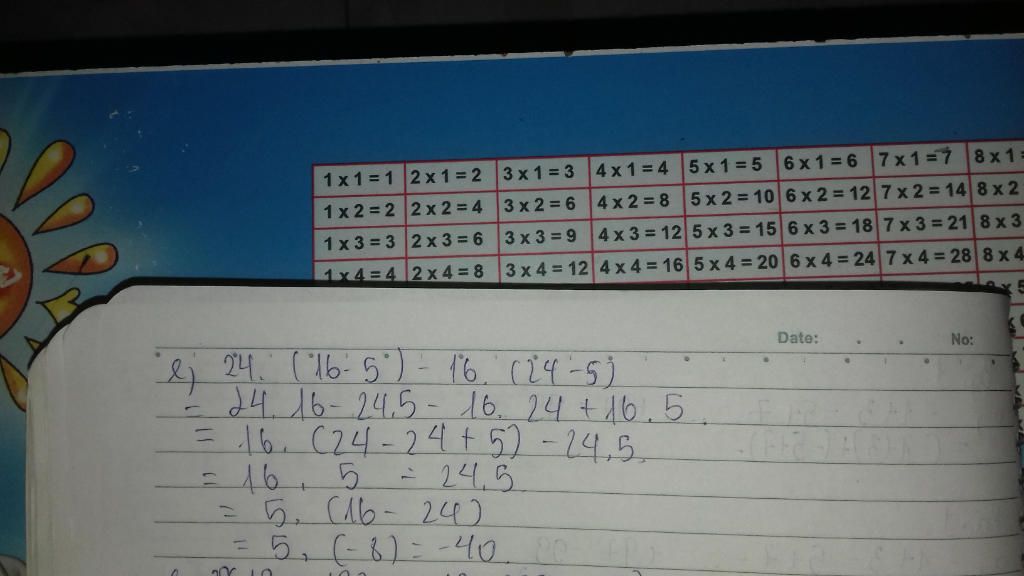 1 x 1 = 1 2 x 1 = 2 3 x 1 = 3 4 x 1 = 4 5 x 1 = 5 6 x 1 = 6 7 x 1 = 7 8 x 1 =
1 x 2 = 2 2 x 2 = 4 3 x 2 = 6 4 x 2 = 8 5 x 2 = 10 6 x 2 = 12 7 x 2 = 14 8 x 2
1 x 3 = 3 2 x 3 = 6 3 x 3 = 9 4 x 3 = 12 5 x 3 = 15 6 x 3 = 18 7 x 3 = 21 8 x 3
1 x 4 = 4 2 x 4 = 8 3 x 4 = 12 4 x 4 = 16 5 x 4 = 20 6 x 4 = 24 7 x 4 = 28 8 x 4
Date: No:
e, 24. (16-5) - 16. (24-5)
= 24. 16 - 24.5 - 16. 24 + 16.5
= 16. (24 - 24 + 5) - 24.5.
= 16. 5 - 24.5
= 5. (16 - 24)
= 5. (-8) = -40.